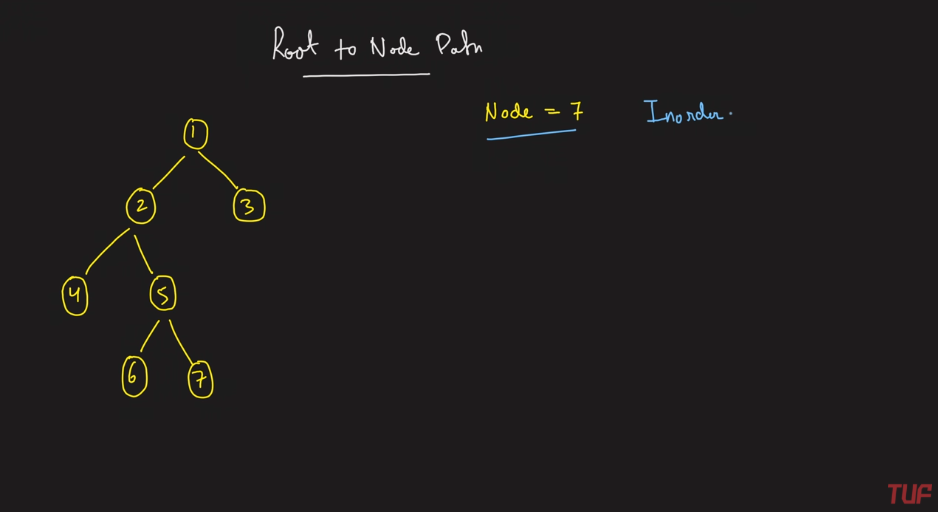 Root to Node Path
Node = 7 Inorder.
1
2 3
4 5
6 7
TUF